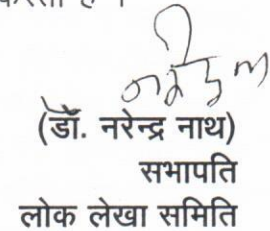 (डॉ. नरेन्द्र नाथ)
सभापति
लोक लेखा समिति